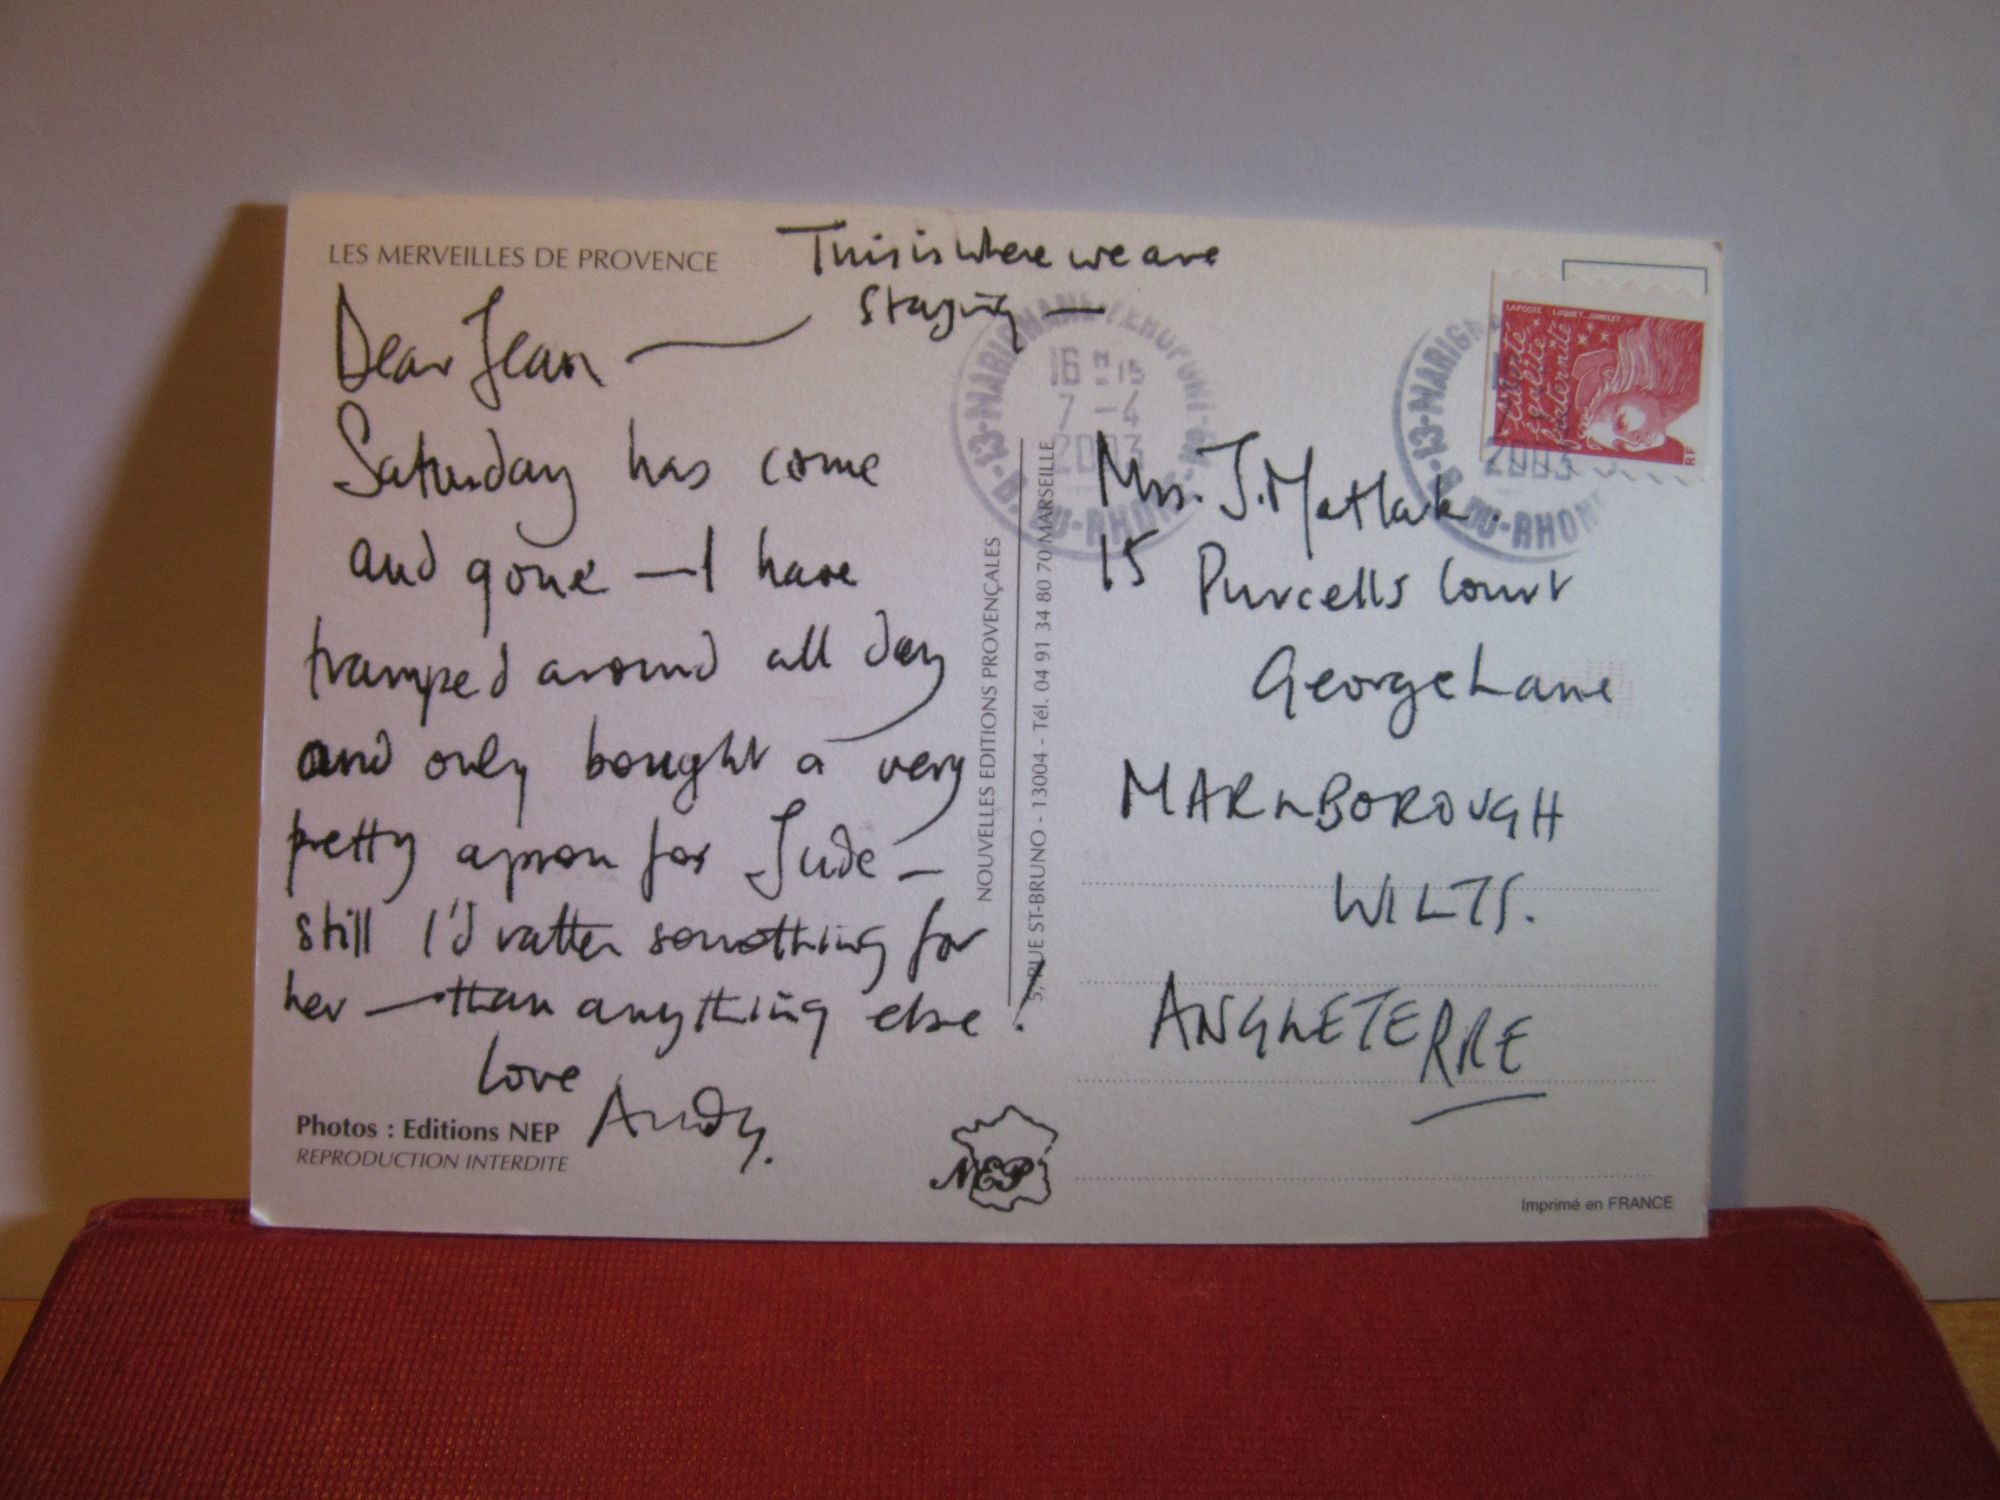 LES MERVEILLES DE PROVENCE
This is where we are
staying —
Dear Jean —
Saturday has come
and gone — I have
tramped around all day
and only bought a very
pretty apron for Jude —
still I'd rather something for
her — than anything else!
Love
Andy.
Photos : Editions NEP
REPRODUCTION INTERDITE
NOUVELLES EDITIONS PROVENÇALES
5, RUE ST-BRUNO - 13004 - Tél. 04 91 34 80 70 MARSEILLE
NEP
16 H 15
7 - 4
2003
13-MARIGNANE
B. DU-RHONE
LA POSTE LUQUET, JUMELET
Liberté
égalité
fraternité
RF
13-MARIGN
2003
B. DU-RHONE
Mrs. J. Matlak.
15 Purcells Court
George Lane
MARLBOROUGH
WILTS.
ANGLETERRE
Imprimé en FRANCE